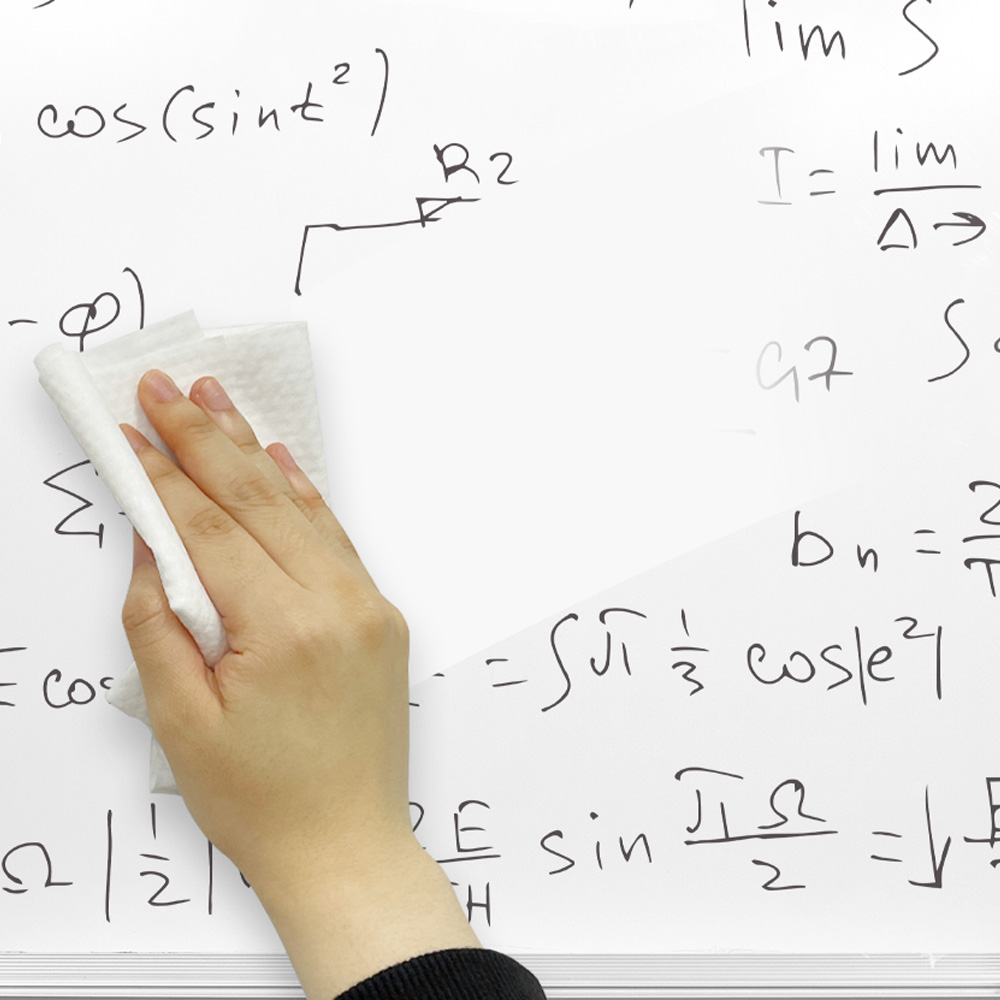 lim ∫
cos(sint²)
R2
I = lim
Δ →
- φ)
G7 ∫
Σ
bₙ = 2
= cos = ∫ π 1/3 cos|e²|
Ω |1/2| E/H sin πΩ/2 = ↓